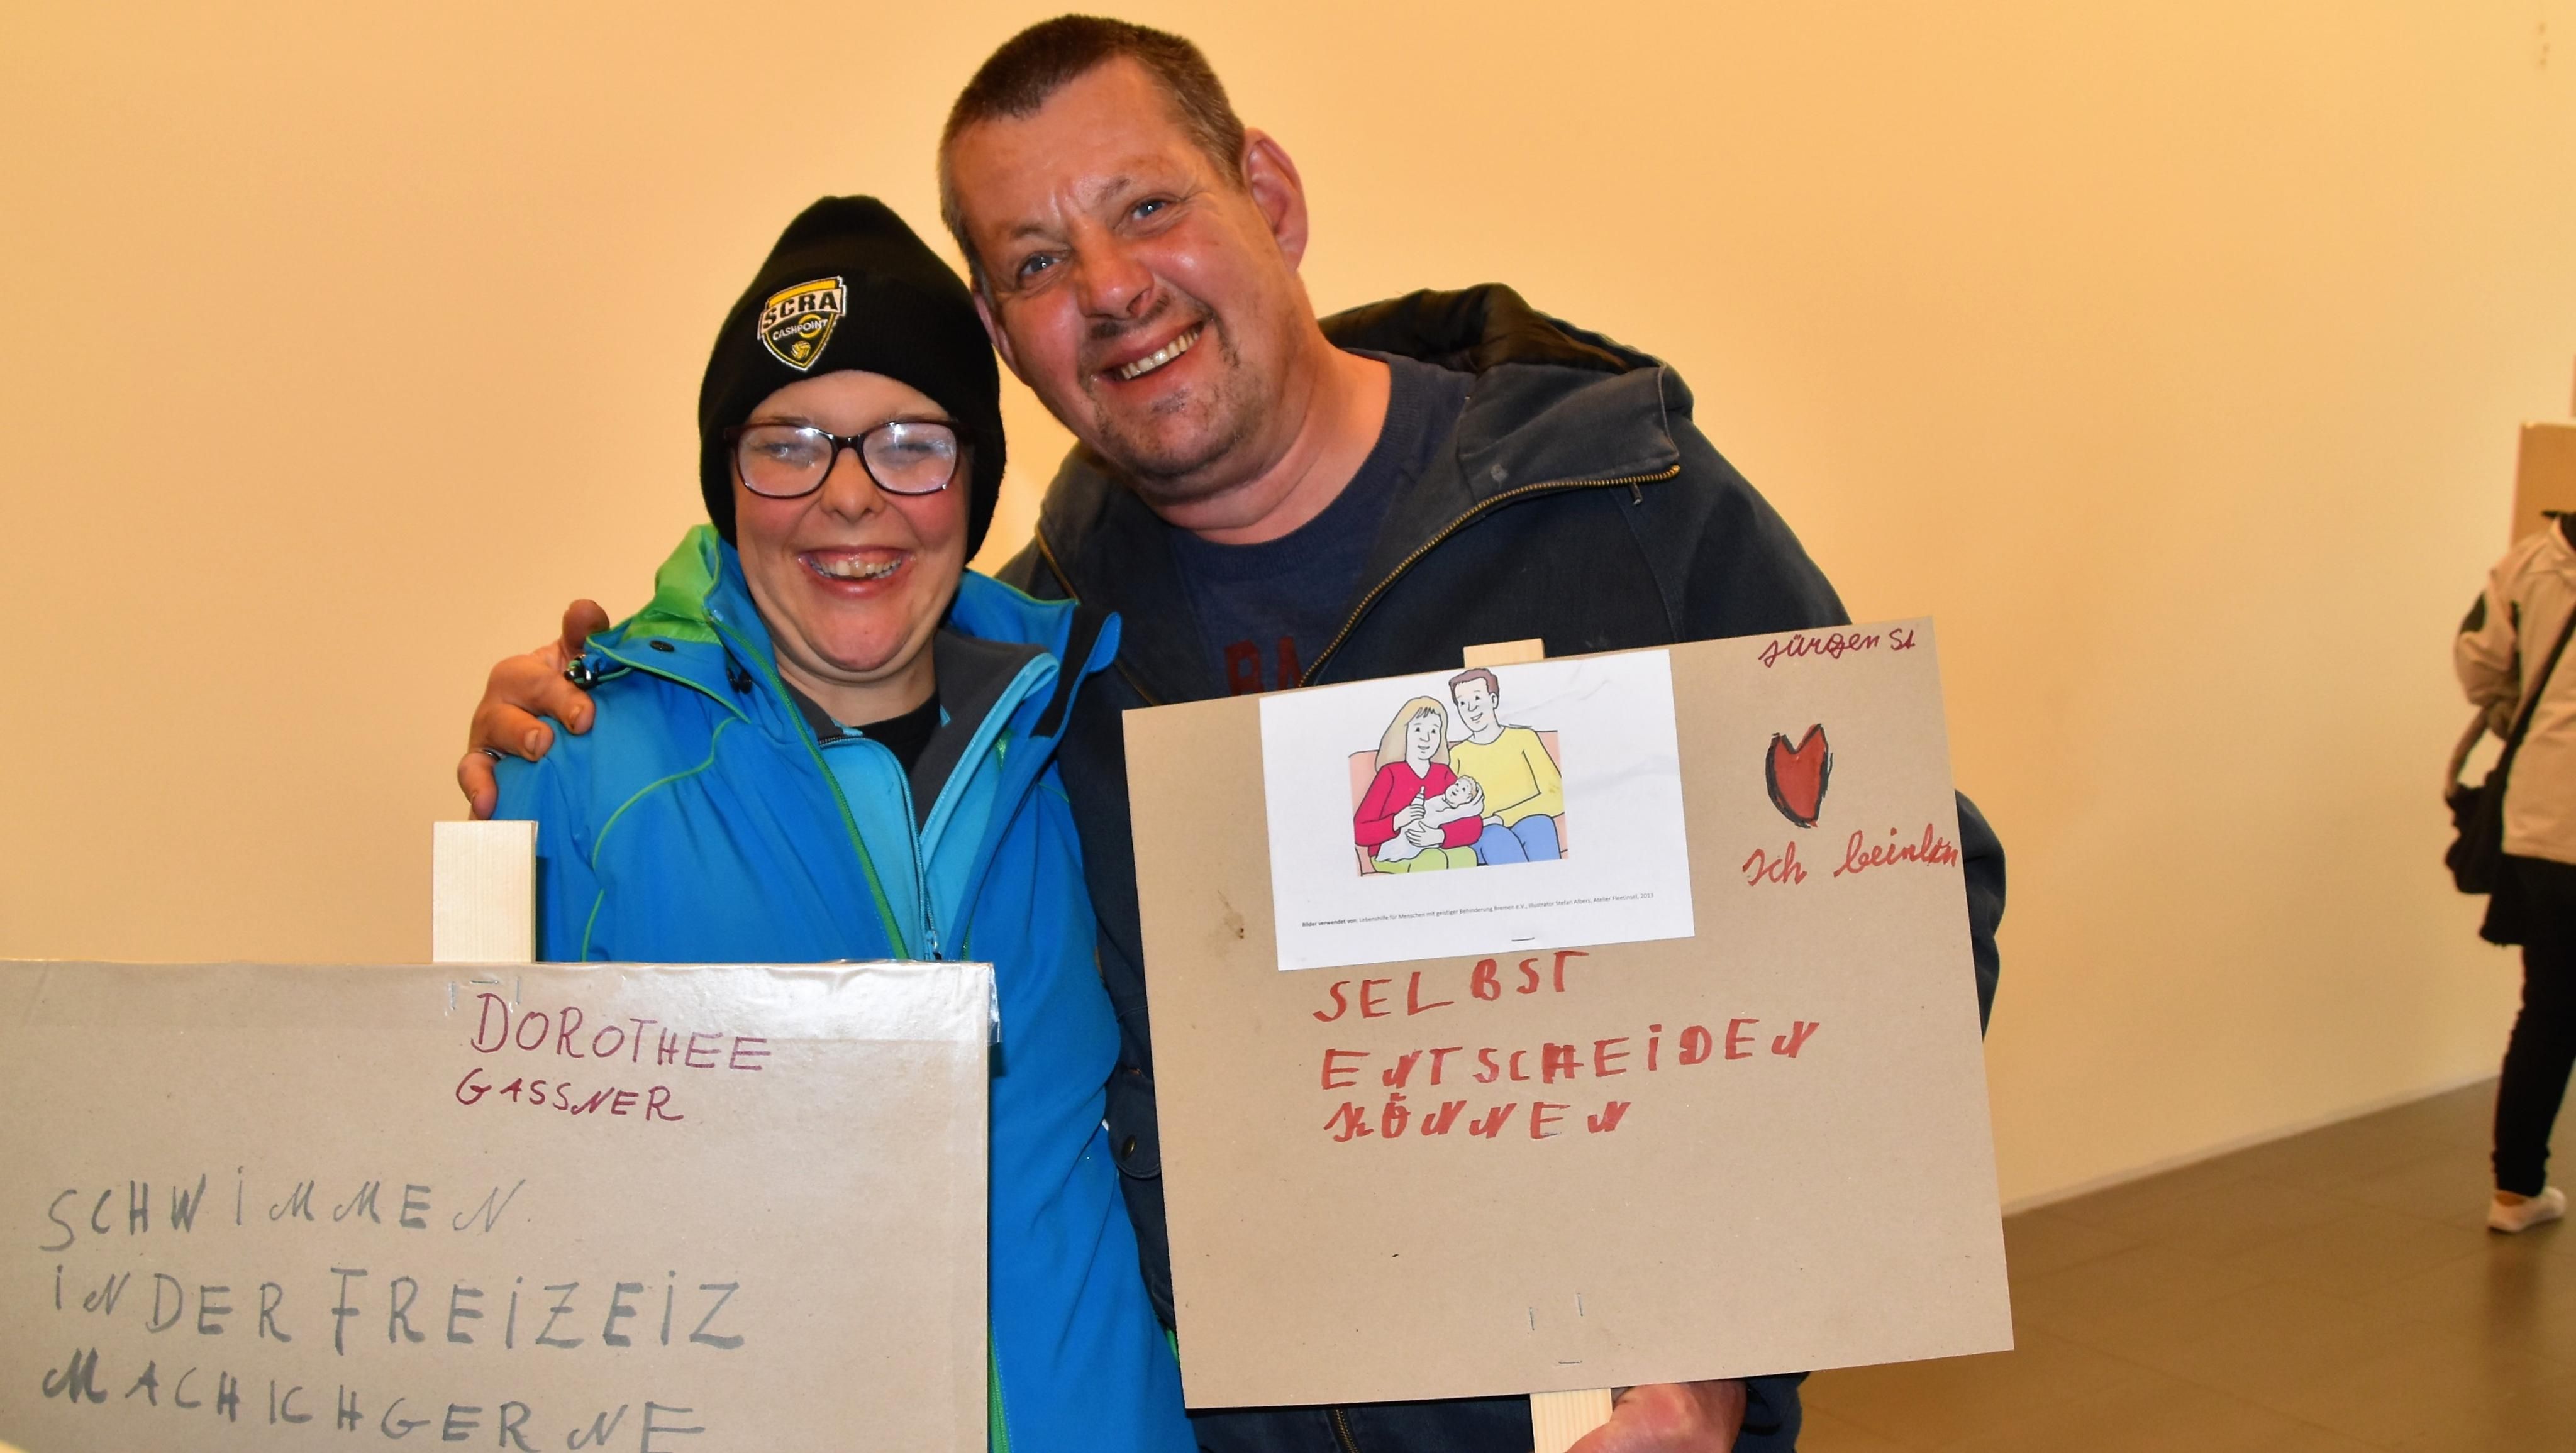 SCRA
CASHPOINT
BA
DOROTHEE
GASSNER
SCHWiMMEN
iN DER FREiZEiZ
MACH ICH GERNE
Jürgen St
Ich
Bilder verwendet von: Lebenshilfe für Menschen mit geistiger Behinderung Bremen e.V., Illustrator Stefan Albers, Atelier Fleetinsel, 2013
SELBST
ENTSCHEiDEN
KÖNNEN